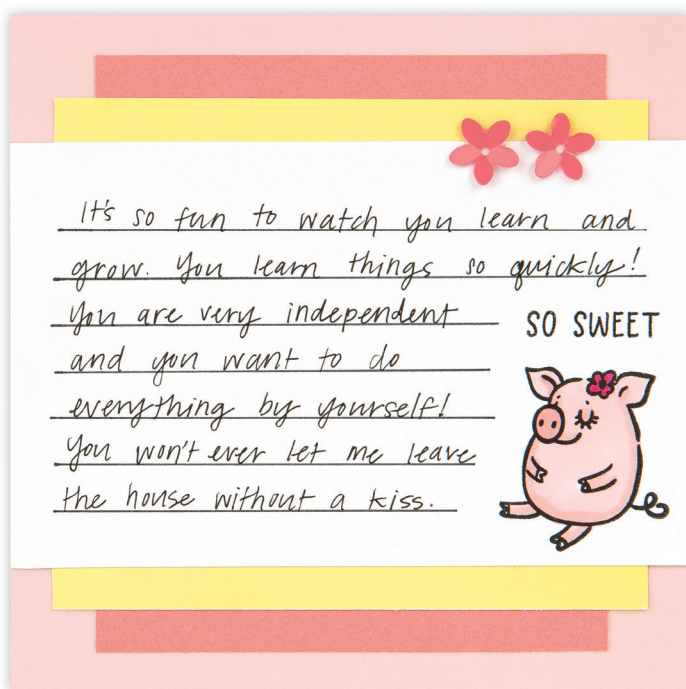 It's so fun to watch you learn and
grow. You learn things so quickly!
You are very independent
and you want to do
everything by yourself!
You won't ever let me leave
the house without a kiss.
SO SWEET